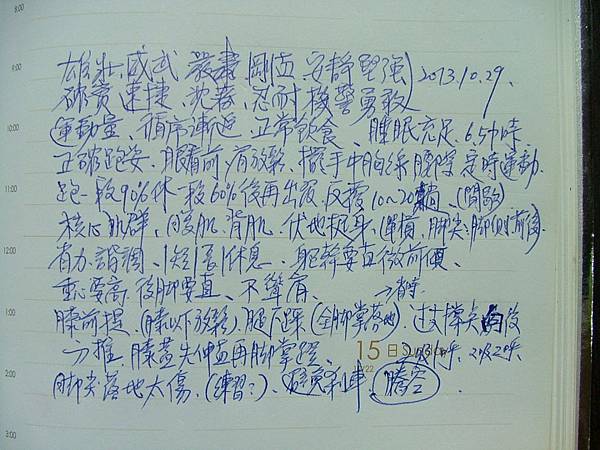 雄壯、威武、嚴肅、剛直、安靜堅強
確實、速捷、沈著、忍耐、機警、勇敢 2013.10.29、
運動量、循序漸進、正常飲食、睡眠充足6.5小時
正確跑姿、眼看前方、放鬆、擺手中胸線腰際、定時運動
跑一段90%休一段60%後再出發、反覆10~20趟、(間歇)
核心肌群、腹肌、背肌、伏地挺身、(單槓、腳尖、腳側、前後
有力、諧調、1短1長1休息、軀幹要直微前傾、
重心要高、後腳要直、不聳肩、
膝前提、(膝以下放鬆)、腿下踩(全腳掌著地)、
方推、膝蓋先伸直再腳掌蹬、15日 Sunday
腳尖落地太傷、(練習?)、避免剎車、騰空
8:00
9:00
10:00
11:00
1:00
2:00
3:00